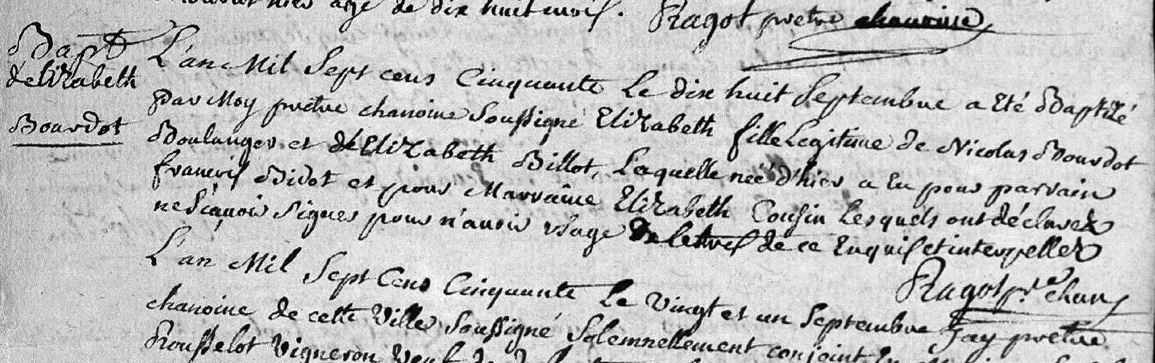 agé de dix huit mois. Ragot pretre chanoine
Bapt
d'elizabeth
Bourdot
L'an Mil Sept cens Cinquante Le dix huit Septembre a Eté Baptisé
par Moy pretre chanoine Soussigné Elizabeth fille Legitime de Nicolas Bourdot
Boulanger et de Elizabeth Billot, Laquelle née d'hier a Eu pour parrain
francois Bidot et pour Marraine Elizabeth Cousin Lesquels ont déclarez
ne Sçavoir Signer pour n'avoir usage de Lettres de ce Enquis et interpellez
Ragot p.re chan
L'an Mil Sept Cens Cinquante Le vingt et un Septembre Jay pretre
chanoine de cette Ville Soussigné Solemnellement conjoint
Rousselot Vigneron Veuf de